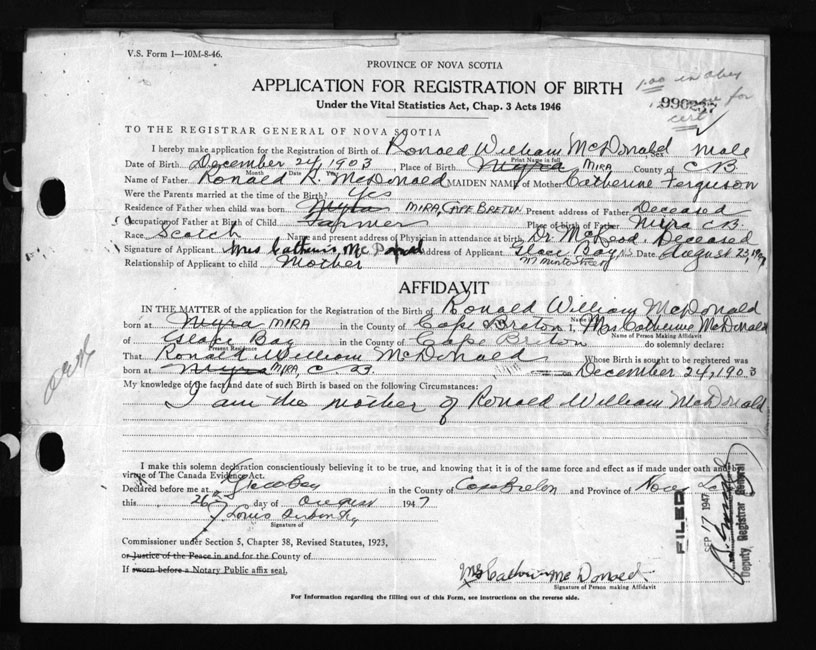 V.S. Form 1—10M-8-46.
PROVINCE OF NOVA SCOTIA
APPLICATION FOR REGISTRATION OF BIRTH
1.00 in
Under the Vital Statistics Act, Chap. 3 Acts 1946
for
cert
TO THE REGISTRAR GENERAL OF NOVA SCOTIA
I hereby make application for the Registration of Birth of Ronald William McDonald Sex male
Print Name in full
Date of Birth December 24, 1903, Place of Birth Myra MIRA County of C.B
Month Date Year
Name of Father Ronald McDonald MAIDEN NAME of Mother Catherine Ferguson
Were the Parents married at the time of the Birth? Yes
Residence of Father when child was born Myra MIRA, CAPE BRETON Present address of Father Deceased
Occupation of Father at Birth of Child Farmer Place of birth of Father Mira C.B.
Race Scotch Name and present address of Physician in attendance at birth Dr. McLeod, Deceased
Signature of Applicant Mrs Catherine McDonald Address of Applicant Glace Bay, N.S. Date August 23, 19
Relationship of Applicant to child Mother Street
AFFIDAVIT
IN THE MATTER of the application for the Registration of the Birth of Ronald William McDonald
Name in Full
born at Myra MIRA in the County of Cape Breton I, Mrs Catherine McDonald
Name of Person Making Affidavit
of Glace Bay in the County of Cape Breton do solemnly declare:
Present Residence
That Ronald William McDonald Whose Birth is sought to be registered was
born at Myra MIRA, C. B. on December 24, 1903
My knowledge of the fact and date of such Birth is based on the following Circumstances:
I am the mother of Ronald William McDonald
I make this solemn declaration conscientiously believing it to be true, and knowing that it is of the same force and effect as if made under oath and by
virtue of The Canada Evidence Act.
Declared before me at Glace Bay in the County of Cape Breton and Province of Nova
this 26 day of August 1947
Louis
Signature of
Commissioner under Section 5, Chapter 38, Revised Statutes, 1923,
or Justice of the Peace in and for the County of
If sworn before a Notary Public affix seal.
Mrs Catherine McDonald
Signature of Person making Affidavit
For Information regarding the filling out of this Form, see instructions on the reverse side.
FILED
SEP 17 1947
Deputy Registrar General